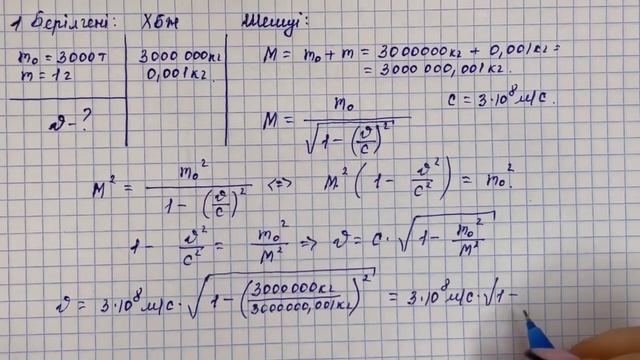 1 Берілгені: ХБЖ Шешуі:
m₀ = 3000т 3000 000кг M = m₀ + m = 3000000кг + 0,001кг =
m = 1г 0,001кг = 3000 000,001кг.
𝜗 - ? M = m₀ / √(1 - (𝜗/c)²) c = 3·10⁸ м/с.
M² = m₀² / (1 - (𝜗/c)²) <=> M² (1 - 𝜗²/c²) = m₀².
1 - 𝜗²/c² = m₀²/M² => 𝜗 = c · √(1 - m₀²/M²)
𝜗 = 3·10⁸ м/с · √(1 - (3000000кг/3000000,001кг)²) = 3·10⁸ м/с · √1 -